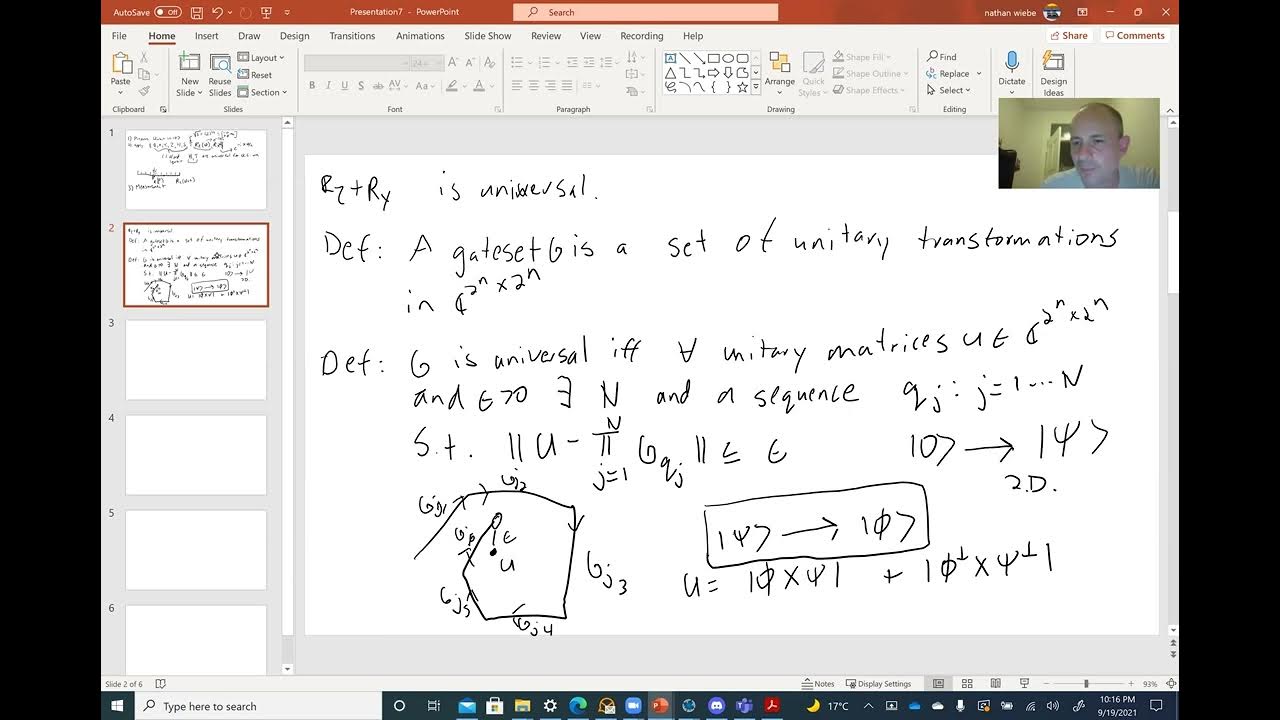 AutoSave Off
Presentation7 - PowerPoint
Search
nathan wiebe
File Home Insert Draw Design Transitions Animations Slide Show Review View Recording Help
Share Comments
Paste
New Slide
Reuse Slides
Layout
Reset
Section
24
B I U S ab AV Aa A
Arrange
Quick Styles
Shape Fill
Shape Outline
Shape Effects
Find
Replace
Select
Dictate
Design Ideas
Clipboard Slides Font Paragraph Drawing Editing Voice Designer
1
2
3
4
5
6
Rz+Ry is universal.
Def: A gateset G is a set of unitary transformations
in ℂ^{2^n×2^n}
Def: G is universal iff ∀ unitary matrices U ∈ ℂ^{2^n×2^n}
and ϵ>0 ∃ N and a sequence q_j: j=1...N
S.t. ||U - ∏_{j=1}^{N} G_{q_j}|| ≤ ϵ
|0⟩ → |ψ⟩
2.D.
G_{j1} G_{j2}
G_{j3}
G_{j4}
G_{j5}
ϵ
U
|ψ⟩ → |ϕ⟩
U = |ϕ⟩⟨ψ| + |ϕ^⊥⟩⟨ψ^⊥|
Slide 2 of 6
Notes Display Settings 93%
Type here to search
17°C
10:16 PM
9/19/2021